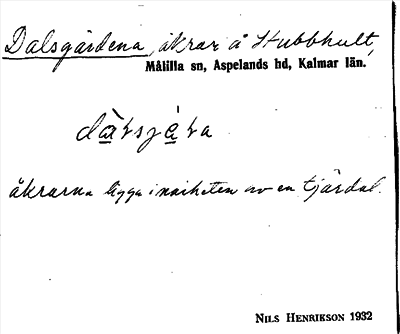 Dalsgärdena, åkrar å Hubbhult,
Målilla sn, Aspelands hd, Kalmar län.
dàrsjéra
åkrarna ligga i närheten av en tjärdal.
NILS HENRIKSON 1932